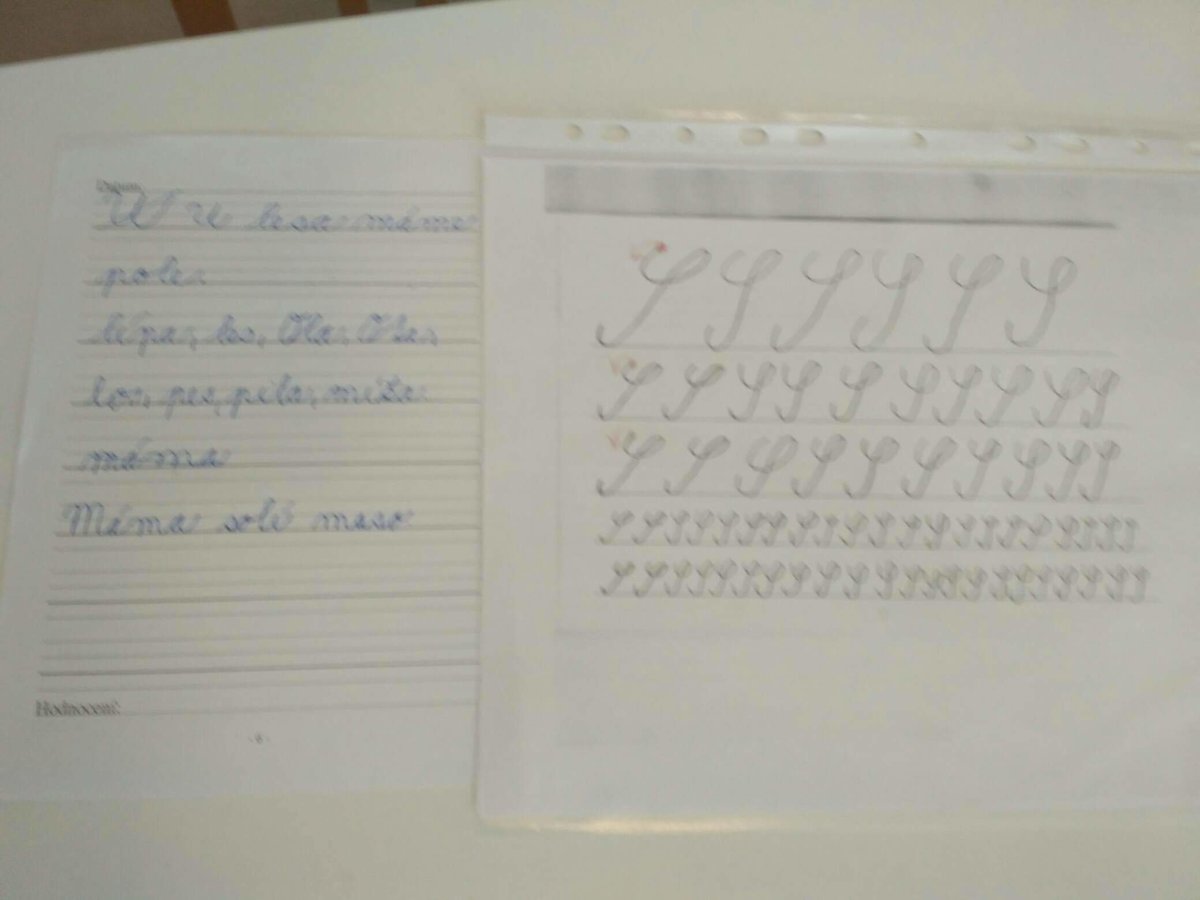 Datum:
U U lesa máme
pole.
lípa, les, Ola, Ola,
los, pes, pila, míša
máma
Máma solí maso
Hodnocení:
- 6 -
S S S S S S
S S S S S S S S S S
S S S S S S S S S S